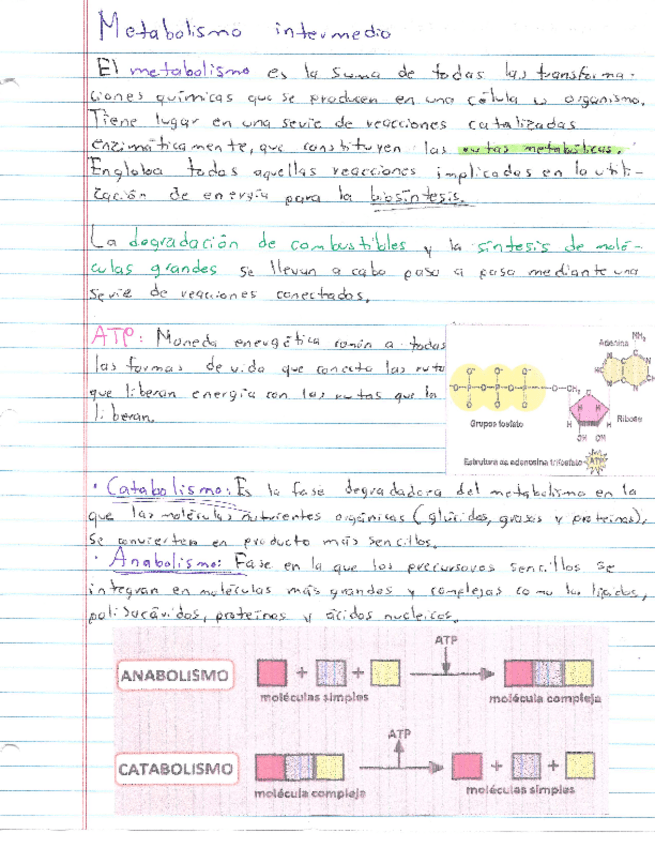 Metabolismo intermedio
El metabolismo es la suma de todas las transforma-
ciones químicas que se producen en una célula u organismo.
Tiene lugar en una serie de reacciones catalizadas
enzimáticamente, que constituyen las rutas metabólicas.
Engloba todas aquellas reacciones implicadas en la utili-
zación de energía para la biosíntesis.
La degradación de combustibles y la síntesis de molé-
culas grandes se llevan a cabo paso a paso mediante una
serie de reacciones conectadas.
ATP: Moneda energética común a todas
las formas de vida que conecta las ruta
que liberan energía con las rutas que la
liberan.
NH₂
Adenina
O⁻ O⁻ O⁻
⁻O P O P O P O CH₂
O O O
Grupos fosfato
H H H H
Ribosa
OH OH
Estrutura da adenosina trifosfato ATP
· Catabolismo: Es la fase degradadora del metabolismo en la
que las moléculas nutrientes orgánicas (glúcidos, grasas y proteínas),
se convierten en producto más sencillos.
· Anabolismo: Fase en la que los precursores sencillos se
integran en moléculas más grandes y complejas como los lípidos,
polisacáridos, proteínas y ácidos nucleicos.
ATP
ANABOLISMO + +
moléculas simples molécula compleja
ATP
CATABOLISMO + +
molécula compleja moléculas simples